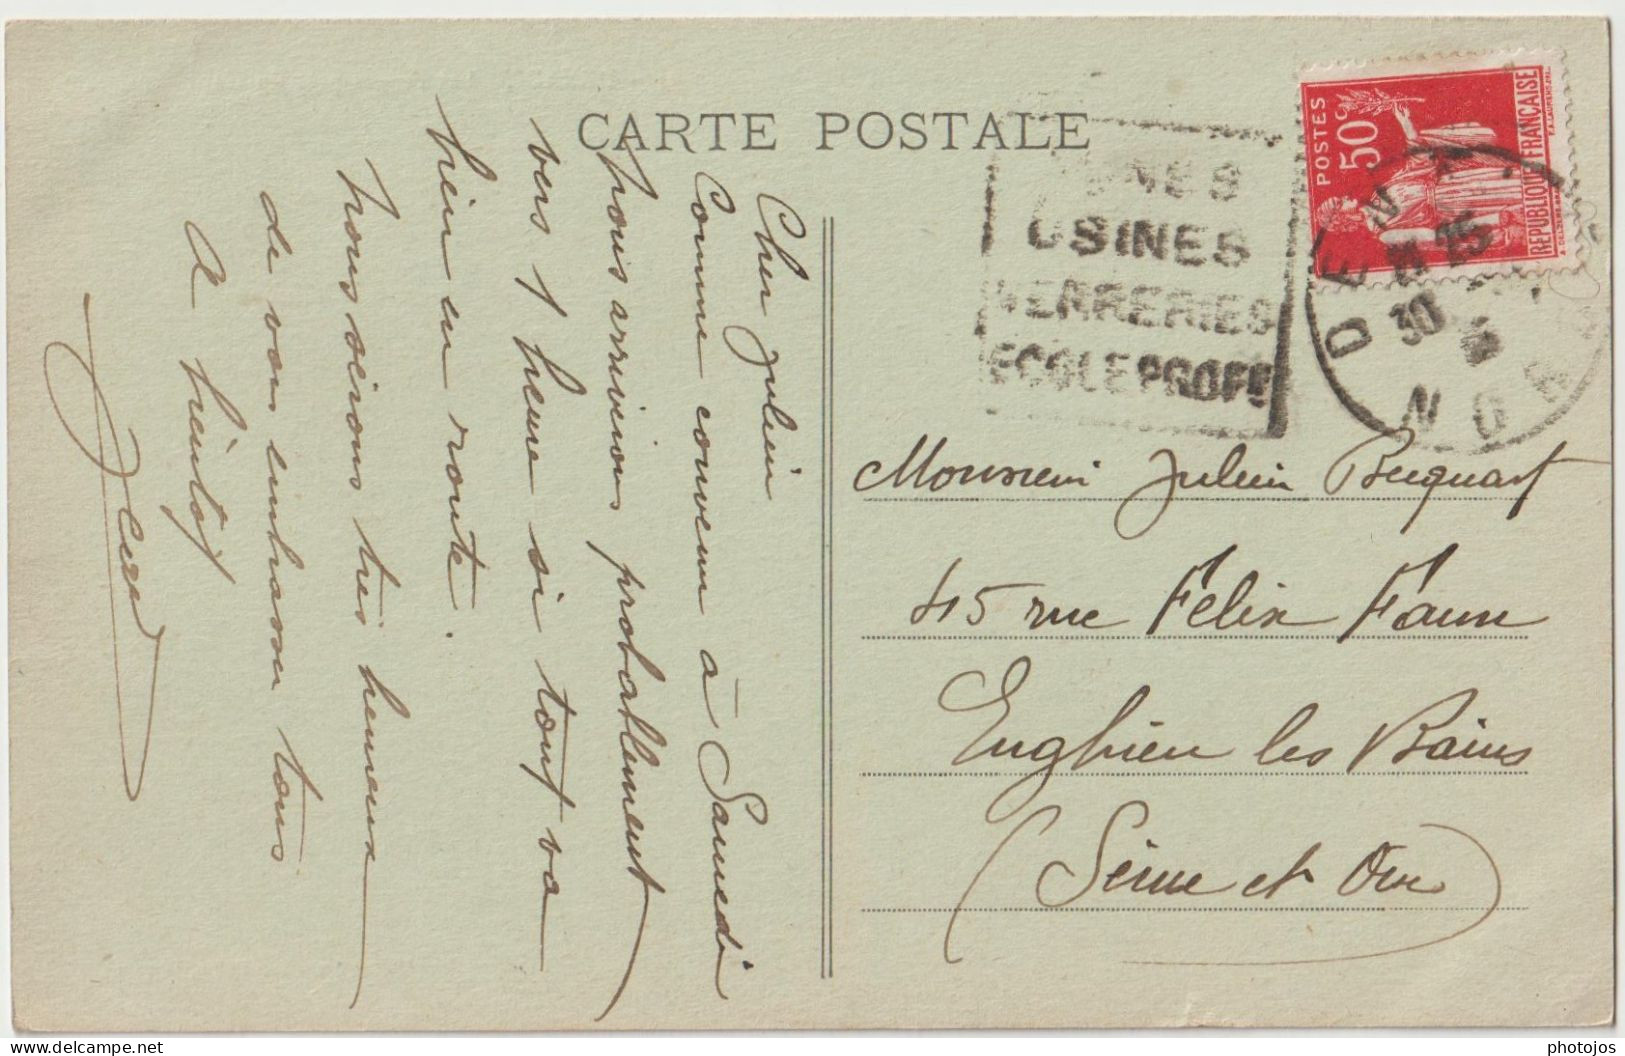 CARTE POSTALE
Cher Julien
Comme convenu à Samedi
nous arriverons probablement
vers 1 heure si tout va
bien en route.
Nous serons très heureux
de vous embrasser tous
A bientôt
MINES
USINES
VERRERIES
ECOLE PROFF
POSTES
50c
REPUBLIQUE FRANÇAISE
DENAIN
21 25
30
NORD
Monsieur Julien Becquart
45 rue Felix Faure
Enghien les Bains
(Seine et Oise)
www.delcampe.net
photojos